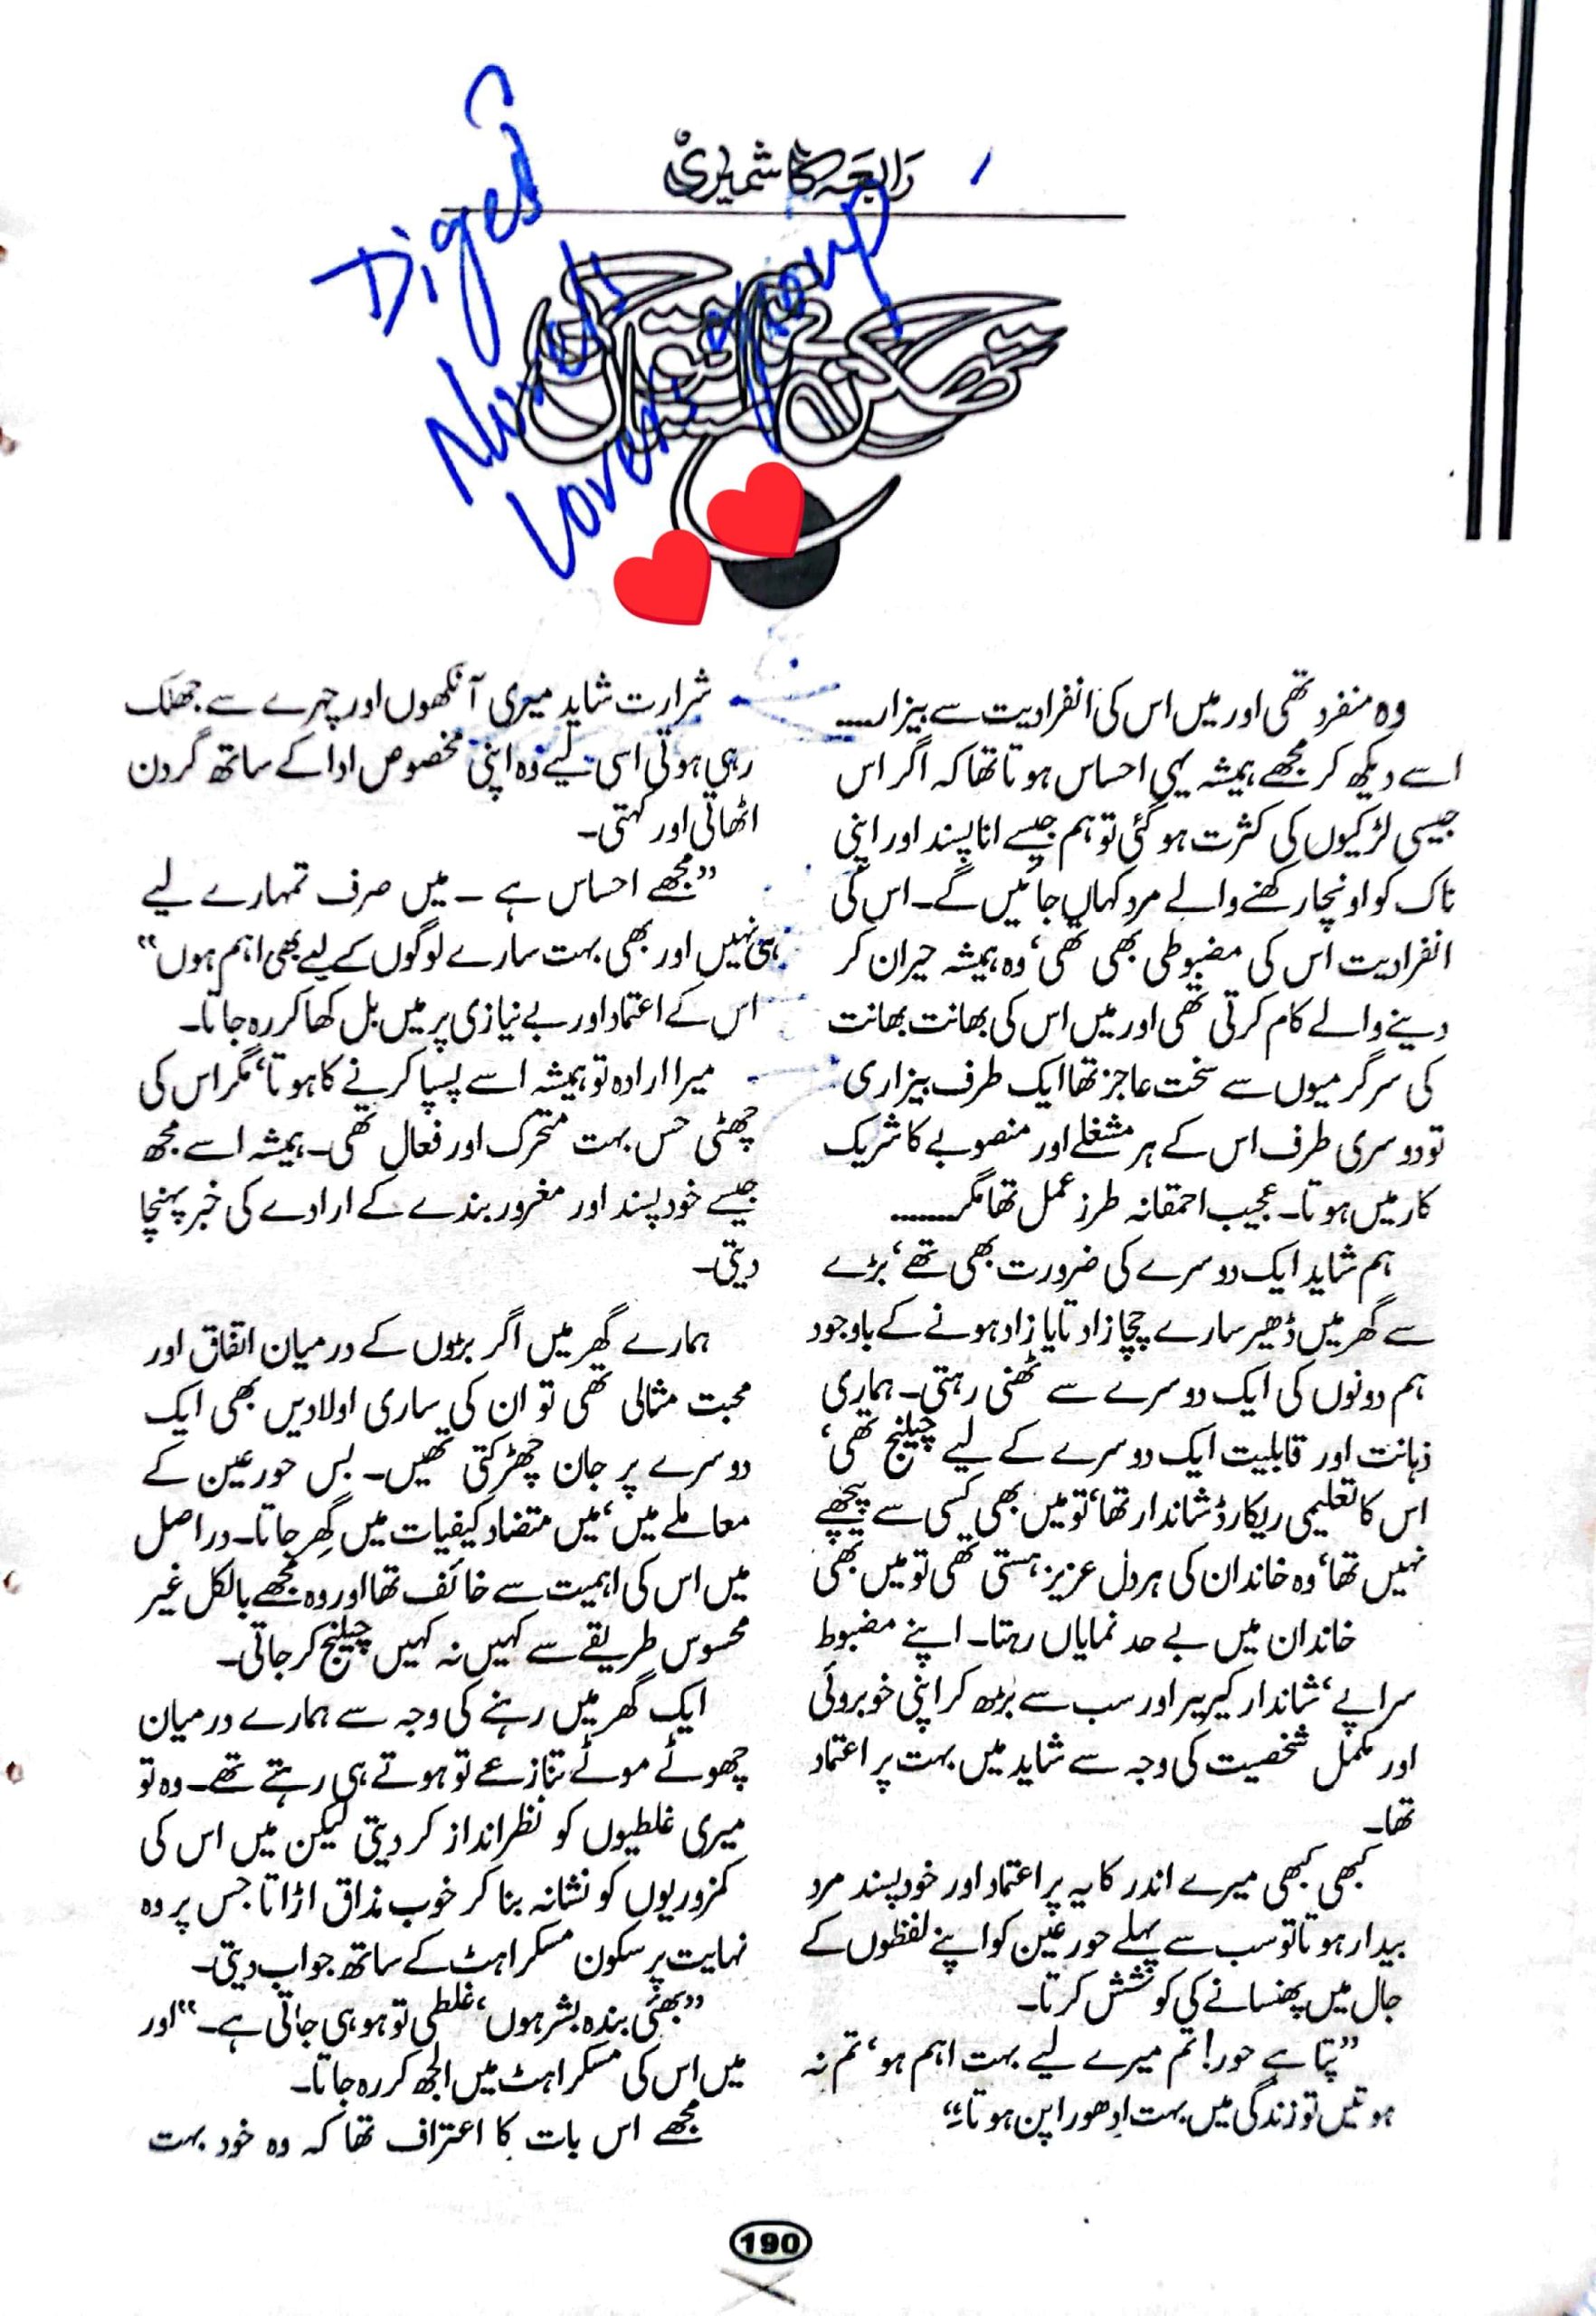 رابعہ کاشمیری
Digest
Novels
Lovers group
وہ منفرد تھی اور میں اس کی انفرادیت سے بیزار....
اسے دیکھ کر مجھے ہمیشہ یہی احساس ہوتا تھا کہ اگر اس
جیسی لڑکیوں کی کثرت ہو گئی تو ہم جیسے انا پسند اور اپنی
ناک کو اونچا رکھنے والے مرد کہاں جائیں گے۔ اس کی
انفرادیت اس کی مضبوطی بھی تھی‘ وہ ہمیشہ حیران کر
دینے والے کام کرتی تھی اور میں اس کی بھانت بھانت
کی سرگرمیوں سے سخت عاجز تھا ایک طرف بیزاری
تو دوسری طرف اس کے ہر مشغلے اور منصوبے کا شریک
کار میں ہوتا۔ عجیب احمقانہ طرز عمل تھا مگر........
ہم شاید ایک دوسرے کی ضرورت بھی تھے‘ بڑے
سے گھر میں ڈھیر سارے چچا زاد تایا زاد ہونے کے باوجود
ہم دونوں کی ایک دوسرے سے ٹھنی رہتی۔ ہماری
ذہانت اور قابلیت ایک دوسرے کے لیے چیلنج تھی‘
اس کا تعلیمی ریکارڈ شاندار تھا‘ تو میں بھی کسی سے پیچھے
نہیں تھا‘ وہ خاندان کی ہر دل عزیز ہستی تھی تو میں بھی
خاندان میں بے حد نمایاں رہتا۔ اپنے مضبوط
سراپے‘ شاندار کیریر اور سب سے بڑھ کر اپنی خوبروئی
اور مکمل شخصیت کی وجہ سے شاید میں بہت پر اعتماد
تھا۔
کبھی کبھی میرے اندر کا یہ پر اعتماد اور خود پسند مرد
بیدار ہوتا تو سب سے پہلے حور عین کو اپنے لفظوں کے
جال میں پھنسانے کی کوشش کرتا۔
”پتا ہے حور! تم میرے لیے بہت اہم ہو‘ تم نہ
ہوتیں تو زندگی میں بہت ادھورا پن ہوتا۔“
شرارت شاید میری آنکھوں اور چہرے سے جھلک
رہی ہوتی اسی لیے وہ اپنی مخصوص ادا کے ساتھ گردن
اٹھاتی اور کہتی۔
”مجھے احساس ہے ۔ میں صرف تمہارے لیے
ہی نہیں اور بھی بہت سارے لوگوں کے لیے بھی اہم ہوں“
اس کے اعتماد اور بے نیازی پر میں بل کھا کر رہ جاتا۔
میرا ارادہ تو ہمیشہ اسے پسپا کرنے کا ہوتا‘ مگر اس کی
چھٹی حس بہت متحرک اور فعال تھی۔ ہمیشہ اسے مجھ
جیسے خود پسند اور مغرور بندے کے ارادے کی خبر پہنچا
دیتی۔
ہمارے گھر میں اگر بڑوں کے درمیان اتفاق اور
محبت مثالی تھی تو ان کی ساری اولادیں بھی ایک
دوسرے پر جان چھڑکتی تھیں۔ بس حور عین کے
معاملے میں‘ میں متضاد کیفیات میں گھِر جاتا۔ دراصل
میں اس کی اہمیت سے خائف تھا اور وہ مجھے بالکل غیر
محسوس طریقے سے کہیں نہ کہیں چیلنج کر جاتی۔
ایک گھر میں رہنے کی وجہ سے ہمارے درمیان
چھوٹے موٹے تنازعے تو ہوتے ہی رہتے تھے۔ وہ تو
میری غلطیوں کو نظر انداز کر دیتی لیکن میں اس کی
کمزوریوں کو نشانہ بنا کر خوب مذاق اڑاتا جس پر وہ
نہایت پر سکون مسکراہٹ کے ساتھ جواب دیتی۔
”بھئی بندہ بشر ہوں‘ غلطی تو ہو ہی جاتی ہے۔“ اور
میں اس کی مسکراہٹ میں الجھ کر رہ جاتا۔
مجھے اس بات کا اعتراف تھا کہ وہ خود بہت
190